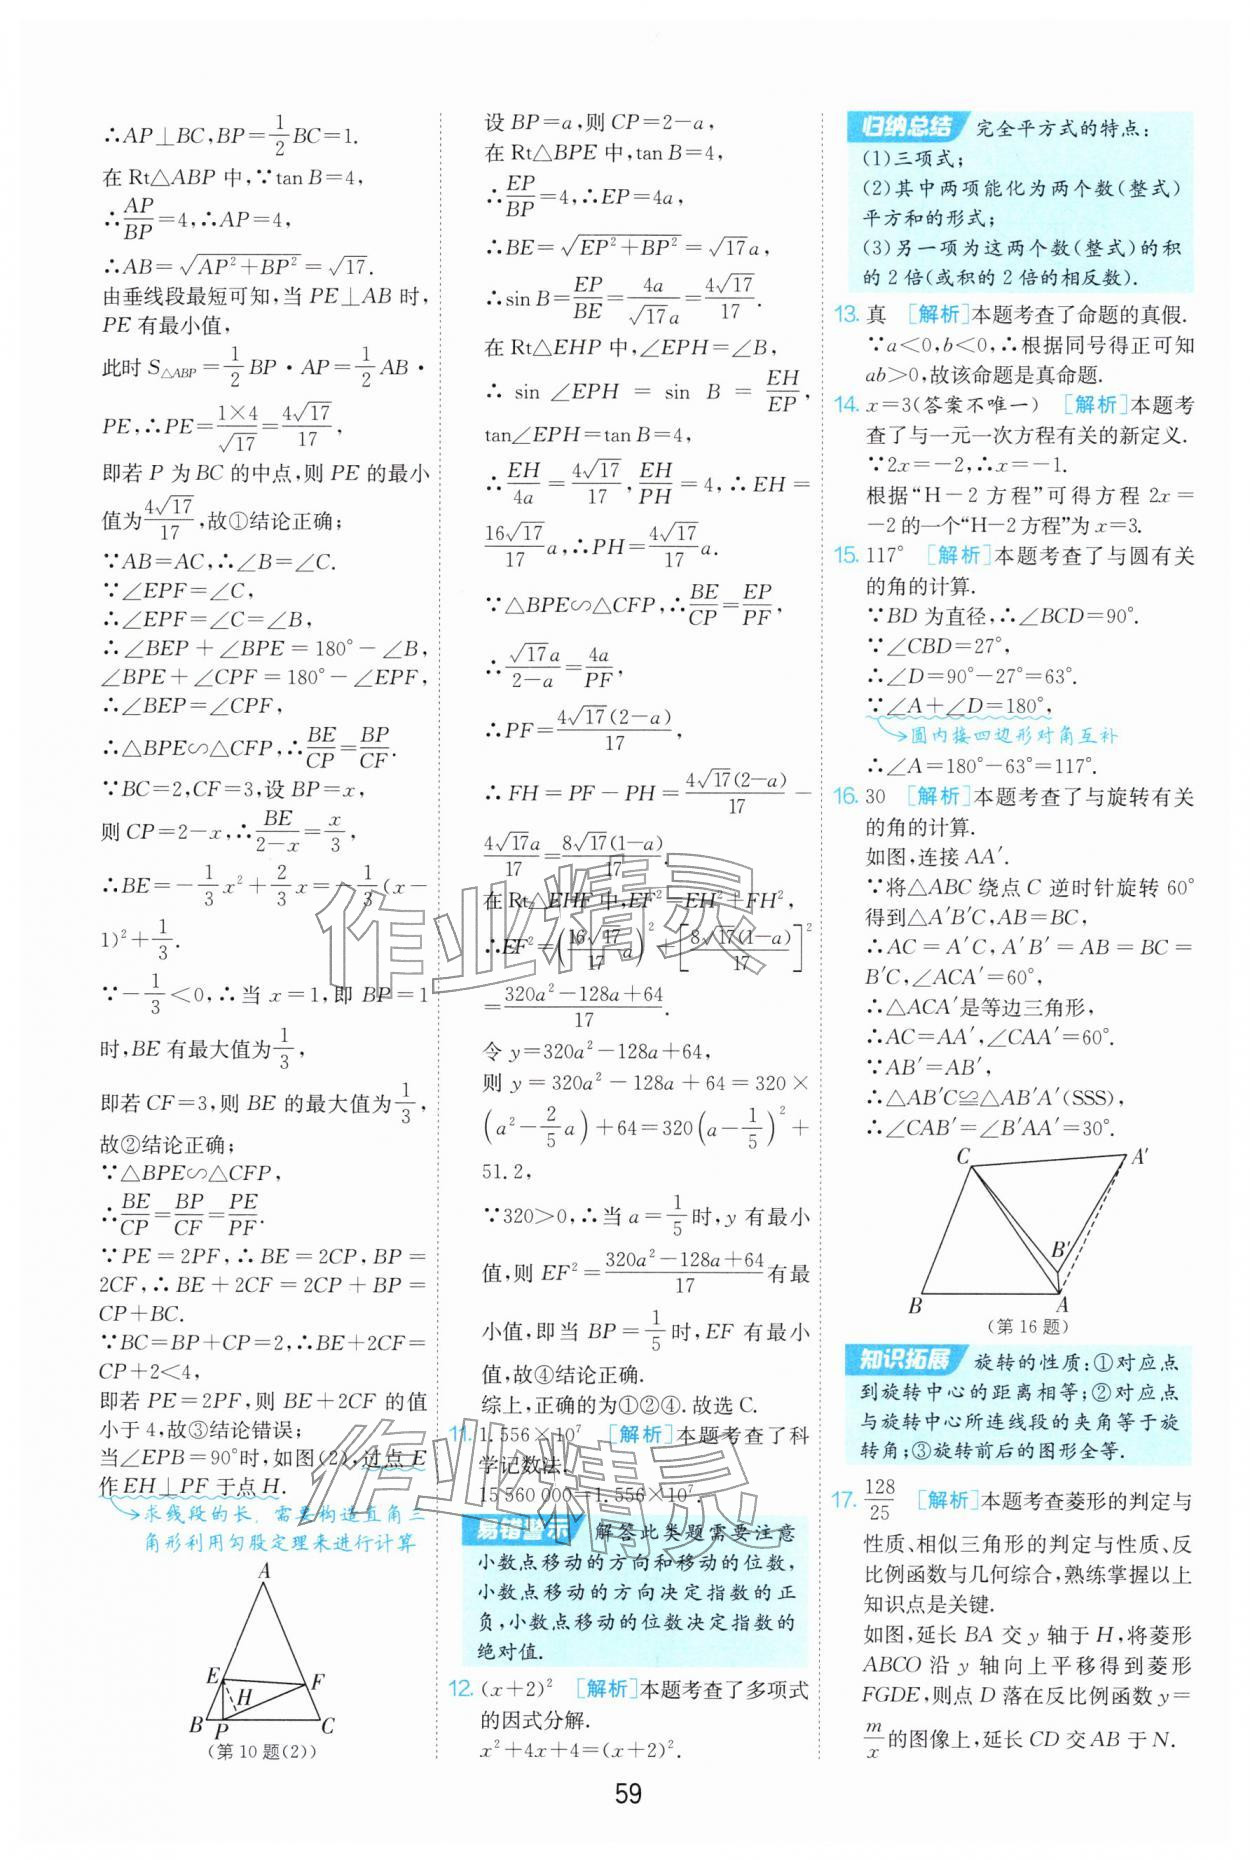 ∴AP⊥BC,BP=1/2BC=1.
在 Rt△ABP 中,∵tan B=4,
∴AP/BP=4,∴AP=4,
∴AB=√(AP²+BP²)=√17.
由垂线段最短可知,当 PE⊥AB 时,
PE 有最小值,
此时 S△ABP=1/2BP·AP=1/2AB·
PE,∴PE=(1×4)/√17=4√17/17,
即若 P 为 BC 的中点,则 PE 的最小
值为4√17/17,故①结论正确;
∵AB=AC,∴∠B=∠C.
∵∠EPF=∠C,
∴∠EPF=∠C=∠B,
∴∠BEP+∠BPE=180°-∠B,
∠BPE+∠CPF=180°-∠EPF,
∴∠BEP=∠CPF,
∴△BPE∽△CFP,∴BE/CP=BP/CF.
∵BC=2,CF=3,设 BP=x,
则 CP=2-x,∴BE/(2-x)=x/3,
∴BE=-1/3x²+2/3x=-1/3(x-
1)²+1/3.
∵-1/3<0,∴当 x=1,即 BP=1
时,BE 有最大值为1/3,
即若 CF=3,则 BE 的最大值为1/3,
故②结论正确;
∵△BPE∽△CFP,
∴BE/CP=BP/CF=PE/PF.
∵PE=2PF,∴BE=2CP,BP=
2CF,∴BE+2CF=2CP+BP=
CP+BC.
∵BC=BP+CP=2,∴BE+2CF=
CP+2<4,
即若 PE=2PF,则 BE+2CF 的值
小于 4,故③结论错误;
当∠EPB=90°时,如图(2),过点 E
作 EH⊥PF 于点 H.
求线段的长,需要构造直角三
角形利用勾股定理来进行计算
A
E
F
H
B P C
(第 10 题(2))
设 BP=a,则 CP=2-a,
在 Rt△BPE 中,tan B=4,
∴EP/BP=4,∴EP=4a,
∴BE=√(EP²+BP²)=√17a,
∴sin B=EP/BE=4a/(√17a)=4√17/17.
在 Rt△EHP 中,∠EPH=∠B,
∴ sin ∠EPH = sin B = EH/EP,
tan∠EPH=tan B=4,
∴EH/4a=4√17/17,EH/PH=4,∴EH=
16√17/17a,∴PH=4√17/17a.
∵△BPE∽△CFP,∴BE/CP=EP/PF,
∴√17a/(2-a)=4a/PF,
∴PF=4√17(2-a)/17,
∴FH=PF-PH=4√17(2-a)/17-
4√17a/17=8√17(1-a)/17.
在 Rt△EHF 中,EF²=EH²+FH²,
∴EF²=(16√17/17a)²+[8√17(1-a)/17]²
=(320a²-128a+64)/17.
令 y=320a²-128a+64,
则 y=320a²-128a+64=320×
(a²-2/5a)+64=320(a-1/5)²+
51.2,
∵320>0,∴当 a=1/5时,y 有最小
值,则 EF²=(320a²-128a+64)/17有最
小值,即当 BP=1/5时,EF 有最小
值,故④结论正确.
综上,正确的为①②④.故选 C.
11. 1.556×10⁷ [解析]本题考查了科
学记数法.
15 560 000=1.556×10⁷.
易错警示 解答此类题需要注意
小数点移动的方向和移动的位数,
小数点移动的方向决定指数的正
负,小数点移动的位数决定指数的
绝对值.
12. (x+2)² [解析]本题考查了多项式
的因式分解.
x²+4x+4=(x+2)².
归纳总结 完全平方式的特点:
(1)三项式;
(2)其中两项能化为两个数(整式)
平方和的形式;
(3)另一项为这两个数(整式)的积
的 2 倍(或积的 2 倍的相反数).
13. 真 [解析]本题考查了命题的真假.
∵a<0,b<0,∴根据同号得正可知
ab>0,故该命题是真命题.
14. x=3(答案不唯一) [解析]本题考
查了与一元一次方程有关的新定义.
∵2x=-2,∴x=-1.
根据“H-2 方程”可得方程 2x=
-2的一个“H-2方程”为 x=3.
15. 117° [解析]本题考查了与圆有关
的角的计算.
∵BD 为直径,∴∠BCD=90°.
∵∠CBD=27°,
∴∠D=90°-27°=63°.
∵∠A+∠D=180°,
圆内接四边形对角互补
∴∠A=180°-63°=117°.
16. 30 [解析]本题考查了与旋转有关
的角的计算.
如图,连接 AA′.
∵将△ABC 绕点 C 逆时针旋转 60°
得到△A′B′C,AB=BC,
∴AC=A′C,A′B′=AB=BC=
B′C,∠ACA′=60°,
∴△ACA′是等边三角形,
∴AC=AA′,∠CAA′=60°.
∵AB′=AB′,
∴△AB′C≌△AB′A′(SSS),
∴∠CAB′=∠B′AA′=30°.
C A′
B′
B A
(第 16 题)
知识拓展 旋转的性质:①对应点
到旋转中心的距离相等;②对应点
与旋转中心所连线段的夹角等于旋
转角;③旋转前后的图形全等.
17. 128/25 [解析]本题考查菱形的判定与
性质、相似三角形的判定与性质、反
比例函数与几何综合,熟练掌握以上
知识点是关键.
如图,延长 BA 交 y 轴于 H,将菱形
ABCO 沿 y 轴向上平移得到菱形
FGDE,则点 D 落在反比例函数 y=
m/x的图像上,延长 CD 交 AB 于 N.
作业精灵
作业精灵
59